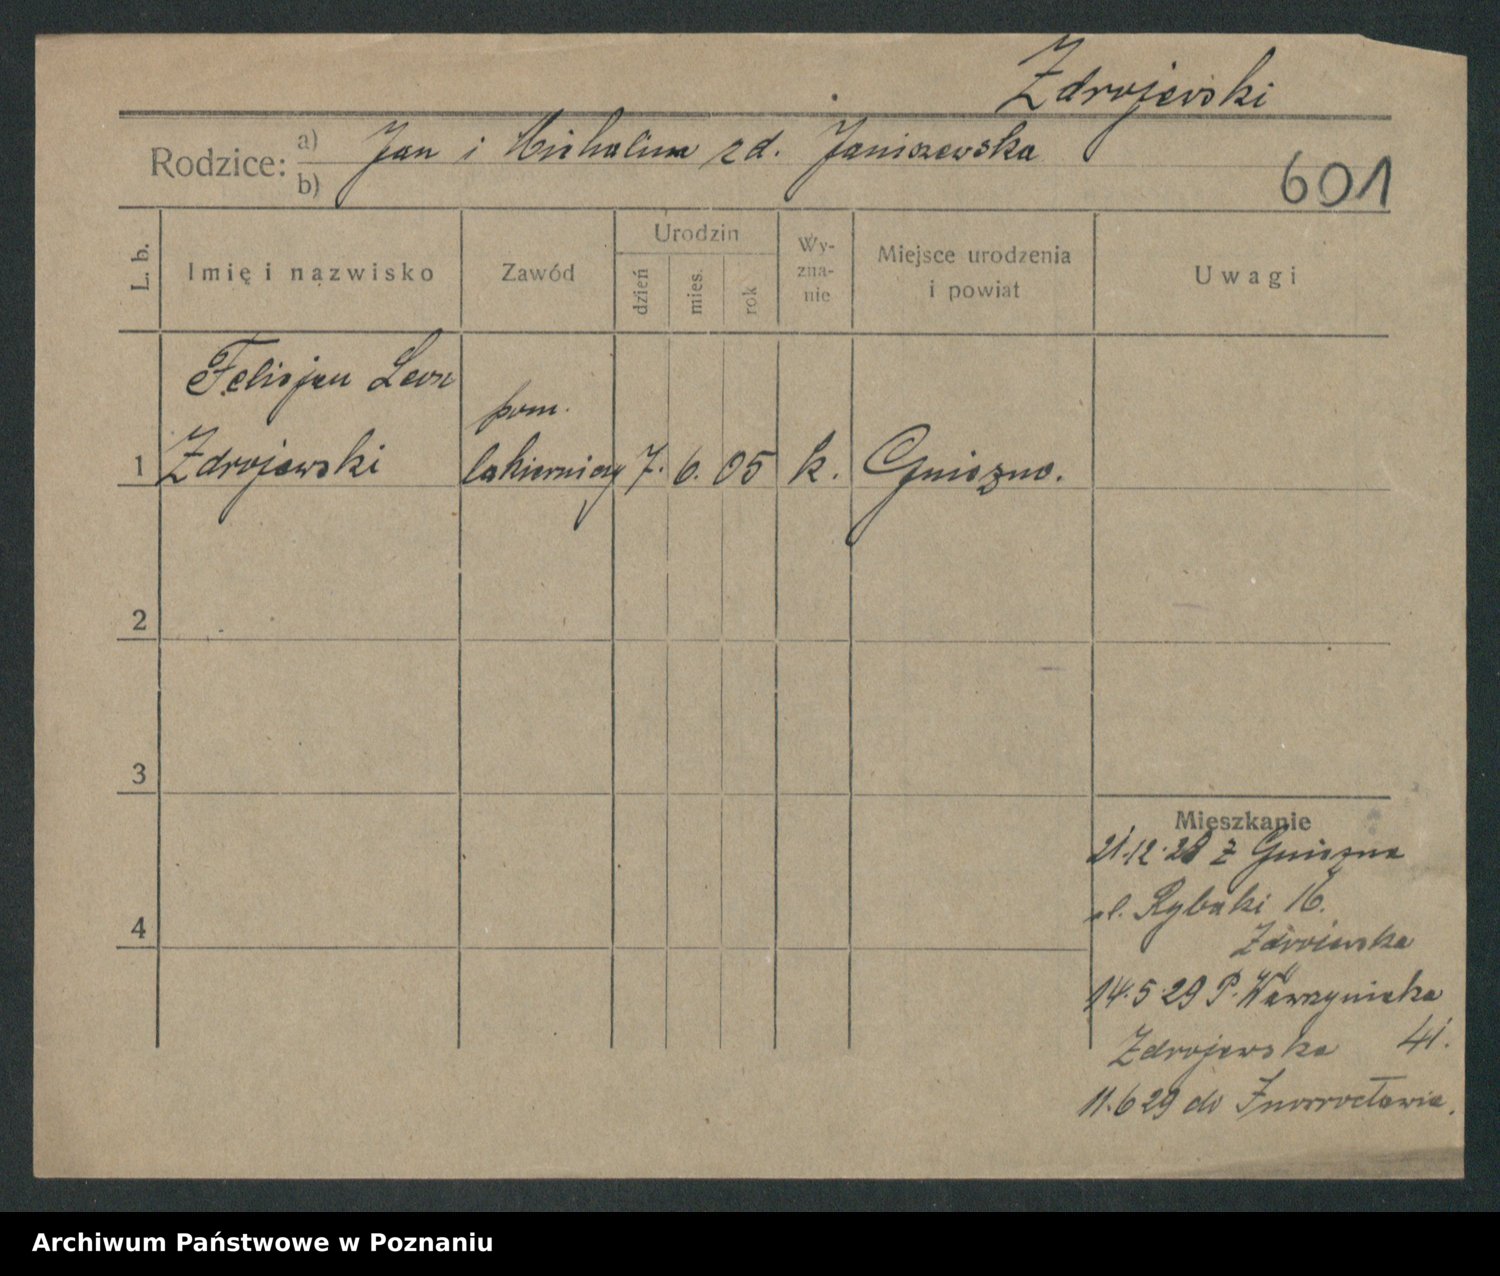 Zdrojewski
Rodzice: a) Jan i Michalina zd. Janiszewska
b)
601
L. b.
Imię i nazwisko
Zawód
Urodzin
dzień
mies.
rok
Wy-
zna-
nie
Miejsce urodzenia
i powiat
Uwagi
Felicjan Leon
pom.
1 Zdrojewski lakierniczy 7. 6. 05 k. Gniezno.
2
3
4
Mieszkanie
21.12.28 z Gniezna
ul. Rybaki 16.
Zdrojewska
14.5.29 P. Wawrzyniaka
Zdrojewska 41.
11.6 29 do Inowrocławia.
Archiwum Państwowe w Poznaniu